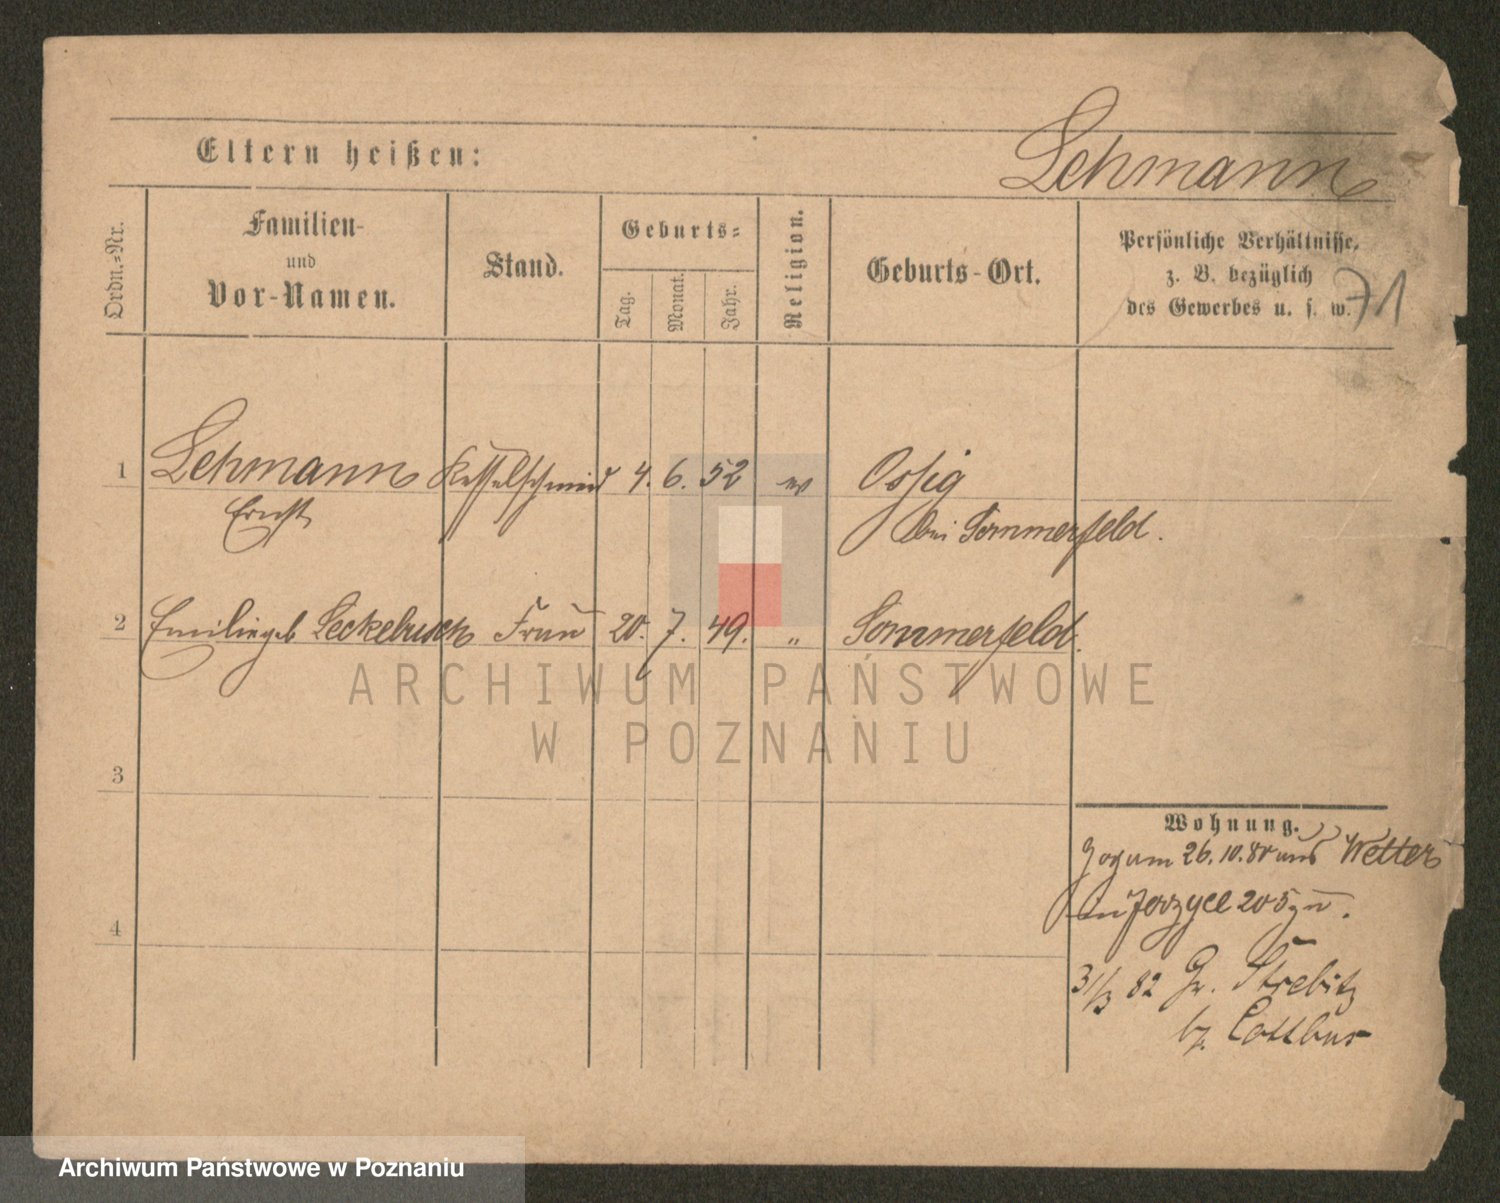 Lehmann
Eltern heißen:
Ordn.=Nr.
Familien-
und
Vor-Namen.
Stand.
Geburts=
Tag.
Monat.
Jahr.
Religion.
Geburts-Ort.
Persönliche Verhältnisse,
z. B. bezüglich
des Gewerbes u. s. w.
71
1 Lehmann Kesselschmied 4. 6. 52 ev Ossig
Ernst bei Sommerfeld.
2 Emilie geb Leckebusch Frau 20. 7. 49. " Sommerfeld.
3
Wohnung.
26. 10. 80 aus Wetter
4
Jerzyce 205
31/3 82 Gr. Strebitz
b. Cottbus
ARCHIWUM PAŃSTWOWE
W POZNANIU
Archiwum Państwowe w Poznaniu